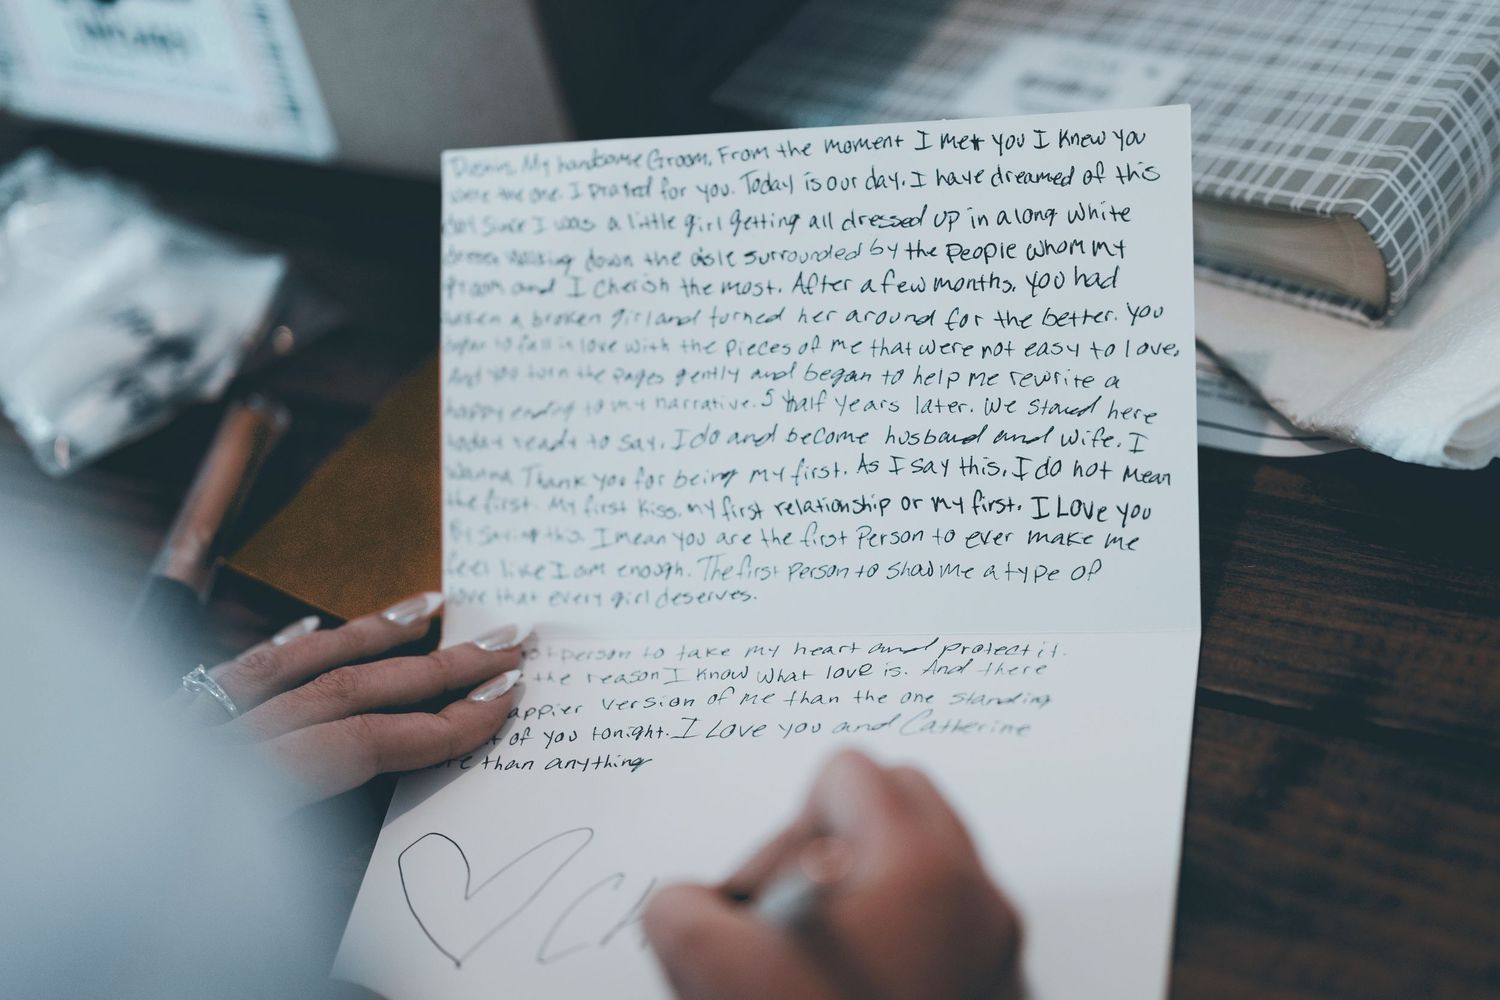 My handsome Groom. From the moment I met you I knew you
were the one. I Prated for you. Today is our day. I have dreamed of this
Since I was a little girl getting all dressed up in a long white
walking down the aisle surrounded by the People whom my
groom and I cherish the most. After a few months, you had
taken a broken girl and turned her around for the better. You
began to fall in love with the pieces of me that were not easy to love,
And you turn the pages gently and began to help me rewrite a
happy ending to my narrative. 5 half years later. We stand here
today ready to say, I do and become husband and wife. I
wanna Thank you for being my first. As I say this, I do not mean
the first. My first kiss. my first relationship or my first. I Love you
By saying this I mean you are the first Person to ever make me
feel like I am enough. The first person to show me a type of
love that every girl deserves.
person to take my heart and protect it.
the reason I know what love is. And there
version of me than the one standing
of you tonight. I Love you and Catherine
than anything
Ch